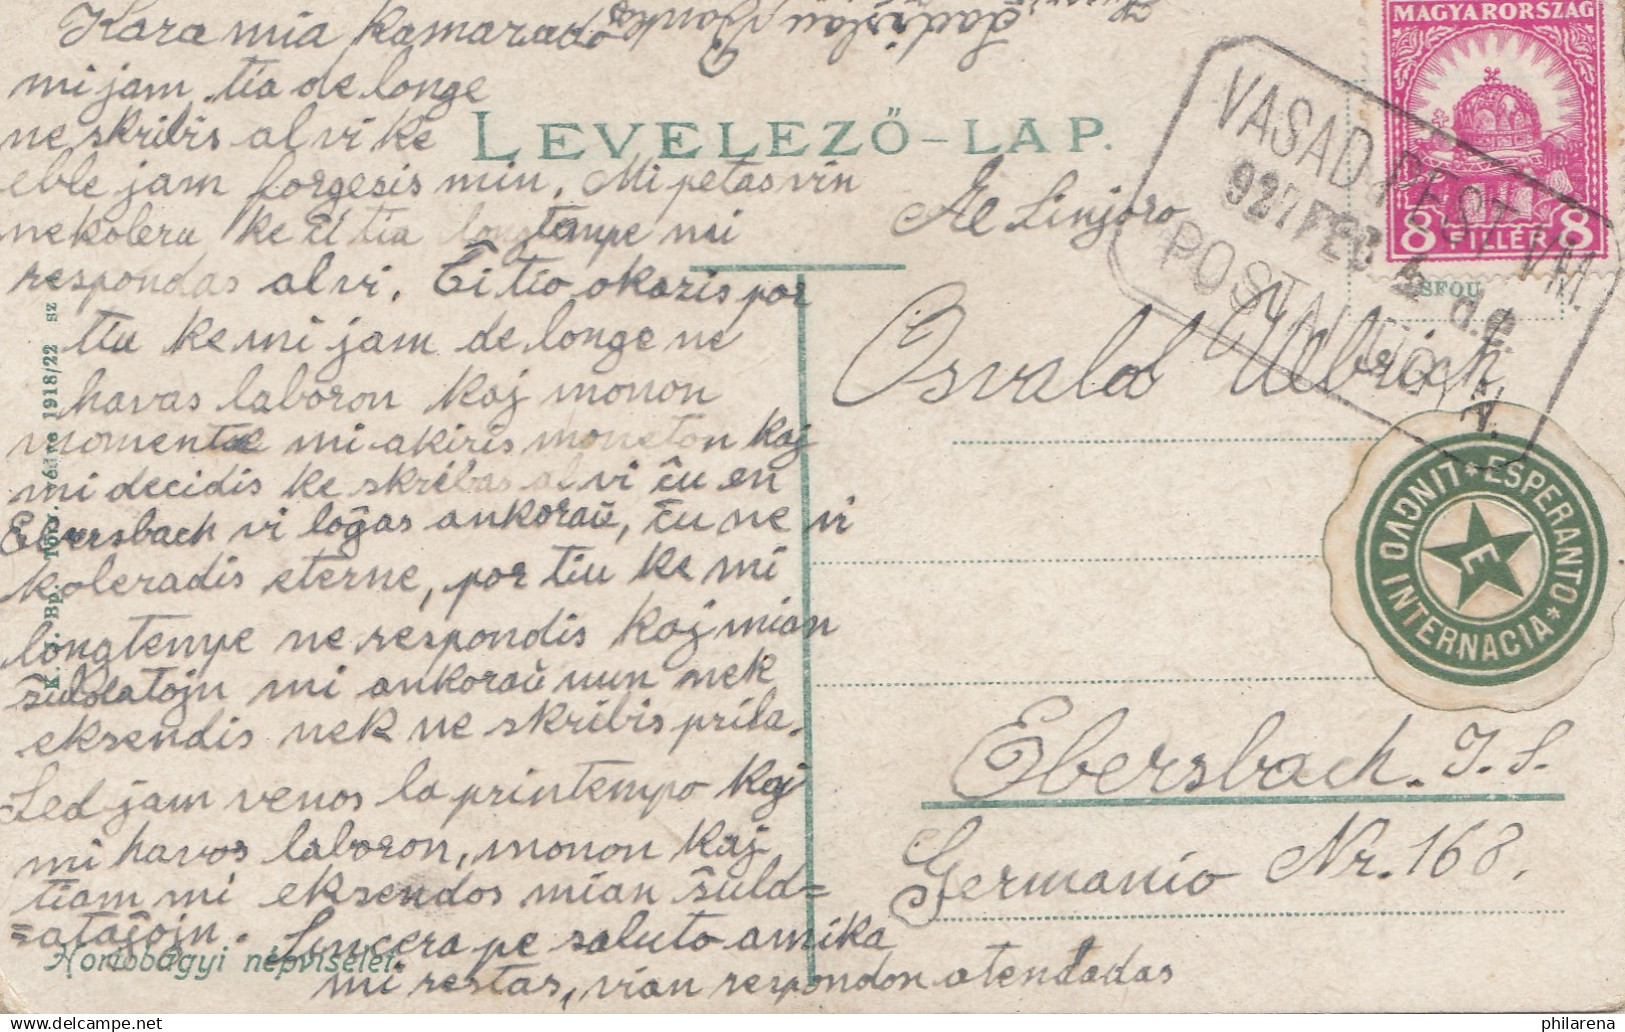 Kara mia kamarado
mi jam tia de longe
ne skribis al vi ke
eble jam forgesis min. Mi petas vin
ne koleru ke ĉi tia longtempe mi
respondas al vi. Ĉi tio okazis por
tiu ke mi jam de longe ne
havas laboron kaj monon
momente mi akiris moneton kaj
mi decidis ke skribas al vi ĉu en
Ebersbach vi loĝas ankoraŭ, ĉu ne vi
koleradis eterne, por tiu ke mi
longtempe ne respondis kaj mian
ŝuldatojn mi ankoraŭ nun nek
eksendis nek ne skribis pri la.
Sed jam venos la printempo kaj
mi havos laboron, monon kaj
tiam mi eksendos mian ŝuld=
=ataĵojn. Sincera pe saluto amika
mi restas, vian respondon atendadas
Ladislau
LEVELEZŐ-LAP.
MAGYARORSZAG
8 FILLÉR 8
VASAD PEST VM.
927 FEB d.e.
POSTA
Al Sinjoro
Osvald Ulbrich
Ebersbach. I. S.
Germanio Nr. 168.
ESPERANTO
LINGVO INTERNACIA
E
1918/22 sz
Hortobágyi népviselet.
philarena